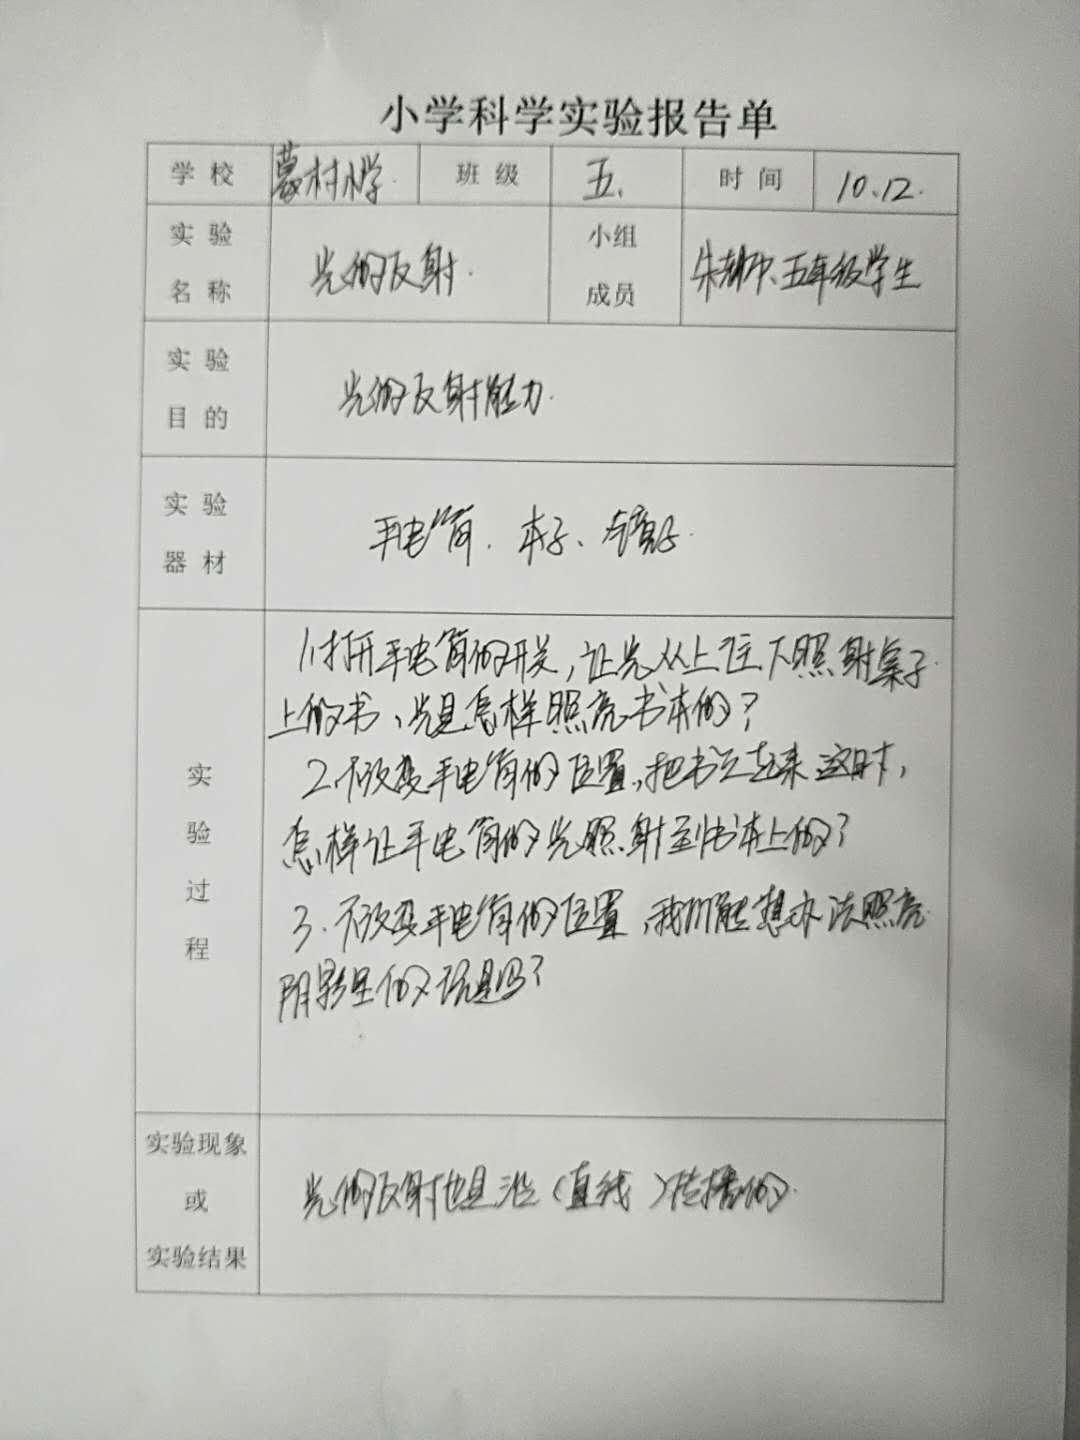 小学科学实验报告单
学校 村小学 班级 五. 时间 10.12.
实验名称 光的反射. 小组成员 五年级学生
实验目的 光的反射能力.
实验器材 手电筒. 本子、镜子.
实验过程
1.打开手电筒的开关,让光从上往下照射桌子
上的书、光是怎样照亮书本的?
2.不改变手电筒的位置,把书立起来这时,
怎样让手电筒的光照射到书本上的?
3.不改变手电筒的位置,我们能想办法照亮
阴影里的玩具吗?
实验现象
或
实验结果
光的反射也是沿(直线)传播的.